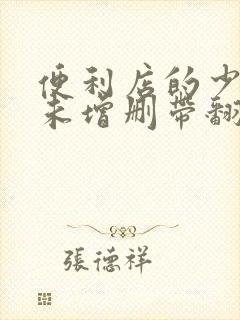 便利店的少
未增删带翻
張德祥